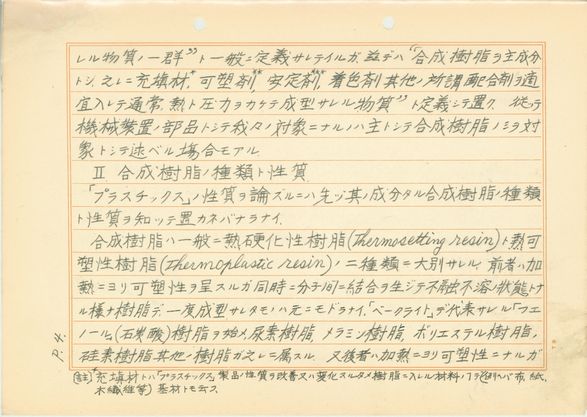 レル物質ノ一群” ト一般ニ定義サレテイルガ、茲デハ “合成樹脂ヲ主成分
トシ、之レニ充填材*、可塑剤**、安定剤**、着色剤其他ノ所謂配合剤ヲ適
宜入レテ通常、熱ト圧力ヲカケテ成型サレル物質” ト定義シテ置ク. 従ッテ
機械装置ノ部品トシテ我々ノ対象ニナルノハ主トシテ合成樹脂ノミヲ対
象トシテ述ベル場合モアル.
Ⅱ 合成樹脂ノ種類ト性質
「プラスチックス」ノ性質ヲ論ズルニハ先ヅ其ノ成分タル合成樹脂ノ種類
ト性質ヲ知ッテ置カネバナラナイ.
合成樹脂ハ一般ニ熱硬化性樹脂(Thermosetting resin)ト熱可
塑性樹脂(Thermoplastic resin)ノ二種類ニ大別サレル. 前者ハ加
熱ニヨリ可塑性ヲ呈スルガ同時ニ分子間ニ結合ヲ生ジテ不融不溶ノ状態トナ
ル様ナ樹脂デ一度成型サレタモノハ元ニモドラナイ.「ベークライト」デ代表サレル「フエ
ノール」(石炭酸)樹脂ヲ始メ、尿素樹脂、メラミン樹脂、ポリエステル樹脂、
硅素樹脂其他ノ樹脂ガ之レニ属スル. 又後者ハ加熱ニヨリ可塑性ニナルガ
P. 4.
(註)*充填材トハ「プラスチックス」製品ノ性質ヲ改善又ハ変化スルタメ樹脂ニ入レル材料ノコト(例ヘバ布、紙、
木繊維等) 基材トモ云フ.